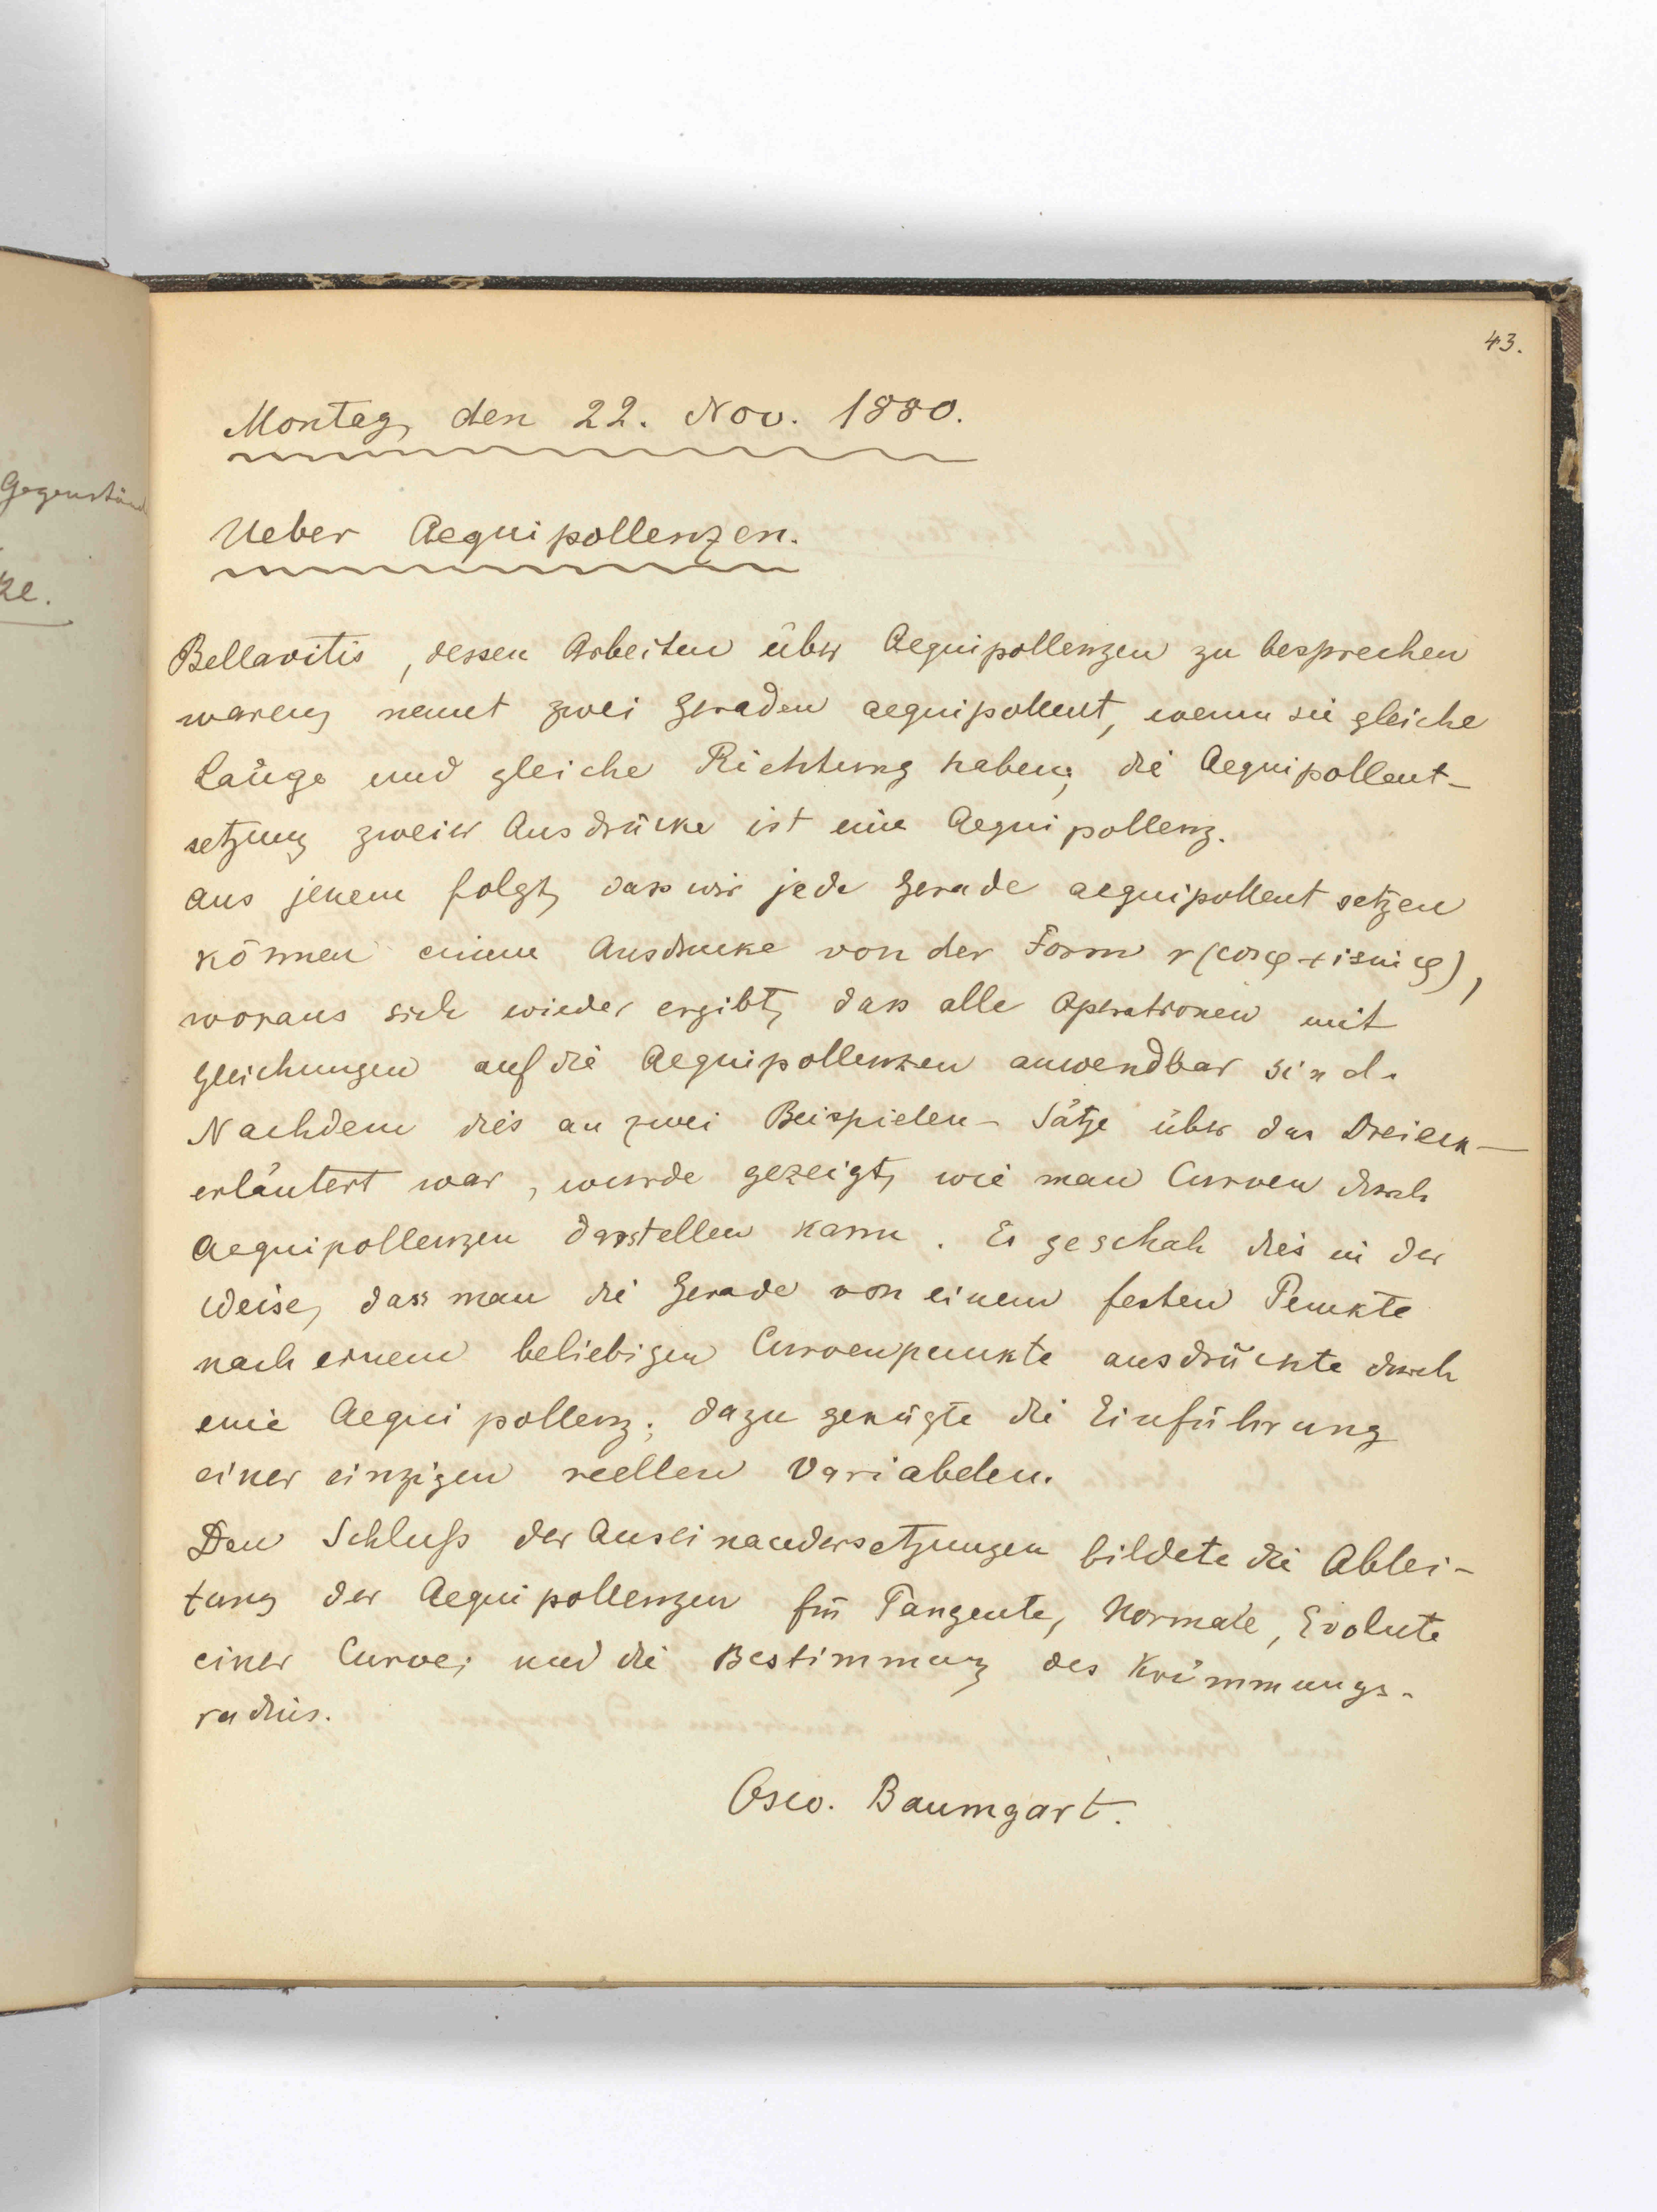 43.
Montag, den 22. Nov. 1880.
Ueber Aequipollenzen.
Gegenständ
ke.
Bellavitis, dessen Arbeiten über Aequipollenzen zu besprechen
waren, nennt zwei Geraden aequipollent, wenn sie gleiche
Länge und gleiche Richtung haben; die Aequipollent-
setzung zweier Ausdrücke ist eine Aequipollenz.
Aus jenem folgt, dass wir jede Gerade aequipollent setzen
können einem Ausdrucke von der Form r(cosφ+isinφ),
woraus sich wieder ergibt, dass alle Operationen mit
Gleichungen auf die Aequipollenzen anwendbar sind.
Nachdem dies an zwei Beispielen - Sätze über das Dreieck -
erläutert war, wurde gezeigt, wie man Curven durch
Aequipollenzen darstellen kann. Es geschah dies in der
Weise, dass man die Gerade von einem festen Punkte
nach einem beliebigen Curvenpunkte ausdrückte durch
eine Aequipollenz; dazu genügte die Einführung
einer einzigen reellen Variabelen.
Den Schluß der Auseinandersetzungen bildete die Ablei-
tung der Aequipollenzen für Tangente, Normale, Evolute
einer Curve; und die Bestimmung des Krümmungs-
radius.
Osw. Baumgart.